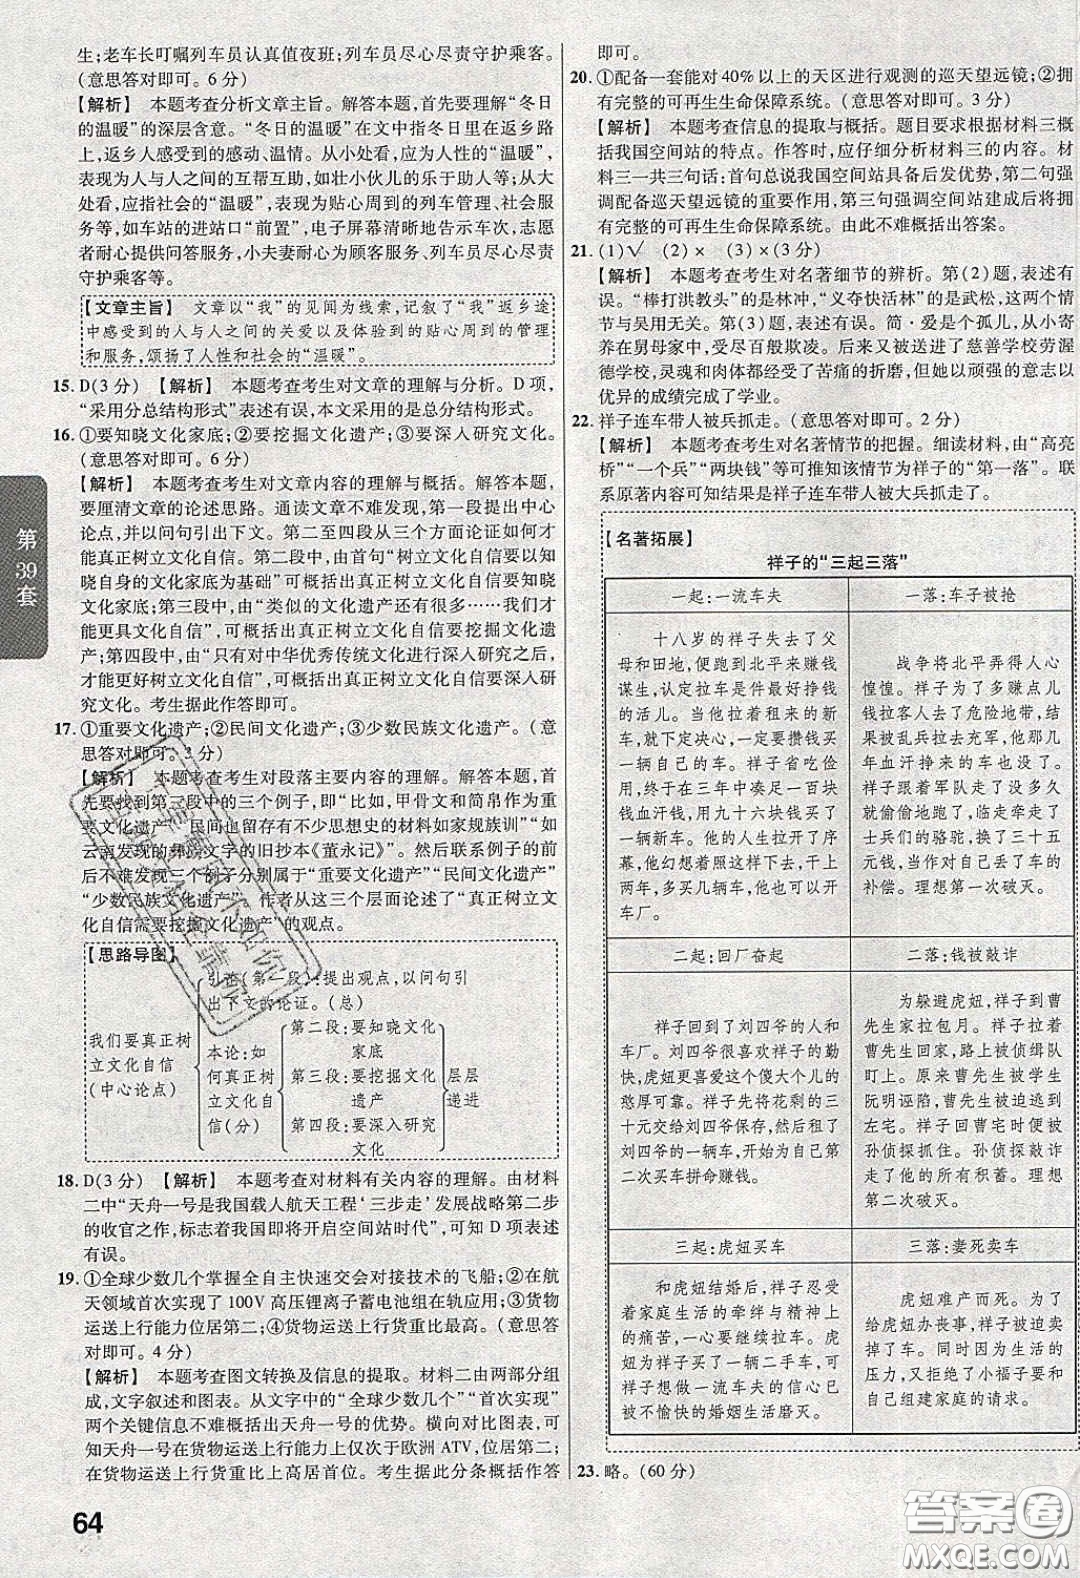 生;老车长叮嘱列车员认真值夜班;列车员尽心尽责守护乘客。
(意思答对即可。6分)
【解析】 本题考查分析文章主旨。解答本题,首先要理解“冬日
的温暖”的深层含意。“冬日的温暖”在文中指冬日里在返乡路
上,返乡人感受到的感动、温情。从小处看,应为人性的“温暖”,
表现为人与人之间的互帮互助,如壮小伙儿的乐于助人等;从大
处看,应指社会的“温暖”,表现为贴心周到的列车管理、社会服
务等,如车站的进站口“前置”,电子屏幕清晰地告示车次,志愿
者耐心提供问答服务,小夫妻耐心为顾客服务,列车员尽心尽责
守护乘客等。
【文章主旨】 文章以“我”的见闻为线索,记叙了“我”返乡途
中感受到的人与人之间的关爱以及体验到的贴心周到的管理
和服务,颂扬了人性和社会的“温暖”。
15. D(3分) 【解析】 本题考查考生对文章的理解与分析。D项,
“采用分总结构形式”表述有误,本文采用的是总分结构形式。
16. ①要知晓文化家底;②要挖掘文化遗产;③要深入研究文化。
(意思答对即可。6分)
【解析】 本题考查考生对文章内容的理解与概括。解答本题,
要厘清文章的论述思路。通读文章不难发现,第一段提出中心
论点,并以问句引出下文。第二至四段从三个方面论证如何才
能真正树立文化自信。第二段中,由首句“树立文化自信要以知
晓自身的文化家底为基础”可概括出真正树立文化自信要知晓
文化家底;第三段中,由“类似的文化遗产还有很多……我们才
能更具文化自信”,可概括出真正树立文化自信要挖掘文化遗
产;第四段中,由“只有对中华优秀传统文化进行深入研究之后,
才能更好树立文化自信”,可概括出真正树立文化自信要深入研
究文化。考生据此作答即可。
17. ①重要文化遗产;②民间文化遗产;③少数民族文化遗产。(意
思答对即可。3分)
【解析】 本题考查考生对段落主要内容的理解。解答本题,首
先要找到第三段中的三个例子,即“比如,甲骨文和简帛作为重
要文化遗产”“民间也留存有不少思想史的材料如家规族训”“如
云南发现的彝族文字的旧抄本《董永记》”。然后联系例子的前
后不难发现三个例子分别属于“重要文化遗产”“民间文化遗产”
“少数民族文化遗产”。作者从这三个层面论述了“真正树立文
化自信需要挖掘文化遗产”的观点。
【思路导图】
我们要真正树
立文化自信
(中心论点)
引论(第一段):提出观点,以问句引
出下文的论证。(总)
本论:如
何真正树
立文化自
信(分)
第二段:要知晓文化
家底
第三段:要挖掘文化
遗产
第四段:要深入研究
文化
层层
递进
18. D(3分) 【解析】 本题考查对材料有关内容的理解。由材料
二中“天舟一号是我国载人航天工程‘三步走’发展战略第二步
的收官之作,标志着我国即将开启空间站时代”,可知D项表述
有误。
19. ①全球少数几个掌握全自主快速交会对接技术的飞船;②在航
天领域首次实现了100V高压锂离子蓄电池组在轨应用;③货物
运送上行能力位居第二;④货物运送上行货重比最高。(意思答
对即可。4分)
【解析】 本题考查图文转换及信息的提取。材料二由两部分组
成,文字叙述和图表。从文字中的“全球少数几个”“首次实现”
两个关键信息不难概括出天舟一号的优势。横向对比图表,可
知天舟一号在货物运送上行能力上仅次于欧洲ATV,位居第二;
在货物运送上行货重比方面高居首位。考生据此分条概括作答
即可。
20. ①配备一套能对40%以上的天区进行观测的巡天望远镜;②拥
有完整的可再生生命保障系统。(意思答对即可。3分)
【解析】 本题考查信息的提取与概括。题目要求根据材料三概
括我国空间站的特点。作答时,应仔细分析材料三的内容。材
料三一共三句话:首句总说我国空间站具备后发优势,第二句强
调配备巡天望远镜的重要作用,第三句强调空间站建成后将拥
有完整的可再生生命保障系统。由此不难概括出答案。
21. (1)√ (2)× (3)×(3分)
【解析】 本题考查考生对名著细节的辨析。第(2)题,表述有
误。“棒打洪教头”的是林冲,“义夺快活林”的是武松,这两个情
节与吴用无关。第(3)题,表述有误。简·爱是个孤儿,从小寄
养在舅母家中,受尽百般欺凌。后来又进了慈善学校劳渥
德学校,灵魂和肉体都经受了苦痛的折磨,但她以顽强的意志以
优异的成绩完成了学业。
22. 祥子连车带人被兵抓走。(意思答对即可。2分)
【解析】 本题考查考生对名著情节的把握。细读材料,由“高亮
桥”“一个兵”“两块钱”等可推知该情节为祥子的“第一落”。联
系原著内容可知结果是祥子连车带人被大兵抓走了。
【名著拓展】
祥子的“三起三落”
一起:一流车夫
一落:车子被抢
十八岁的祥子失去了父
母和田地,便跑到北平来赚钱
谋生,认定拉车是最好的挣钱
的方式。当他拉着租来的新
车,就下定决心,一定要攒钱买
一辆自己的车。祥子省吃俭
用,终于在三年中凑足一百块
钱,用九十六块钱买了
一辆新车。他的人生拉开了序
幕,他幻想着照这样下去,干上
两年,多买几辆车,他也可以开
车厂。
战争将北平弄得人心
惶惶。祥子为了多赚点儿
钱拉客人去了危险地带,结果
被乱兵拉去充军,他那三
年血汗挣来的车也没了。
祥子跟着军队走了没多久
就偷偷地跑了,临走牵走了
士兵们的骆驼,换了三十五
元钱,当作对自己丢了车的
补偿。理想第一次破灭。
二起:回厂奋起
二落:钱被敲诈
祥子回到了刘四爷的人和
车厂。刘四爷很喜欢祥子的勤
快,虎妞更喜爱这个傻大个儿的
憨厚可靠。祥子将花剩的三
十元交给刘四爷保存,然后租
刘四爷的一辆车,希望攒够钱,
第二次买车拼命赚钱。
为躲避虎妞,祥子到曹
先生家拉包月。祥子一天拉
曹先生回家,路上被侦缉队
盯上。原来曹先生被他的学生
阮明诬陷,曹先生因此躲往
左宅。祥子回曹宅时被
孙侦探抓住。孙侦探敲诈
走了他的所有积蓄。理想
第二次破灭。
三起:虎妞买车
三落:妻死卖车
和虎妞结婚后,祥子忍受
着家庭生活的牵绊与精神上
的痛苦,一心要继续拉车。虎
妞给祥子买了一辆二手车,可
祥子想做一流车夫的信心已
被不愉快的婚姻生活磨灭。
虎妞难产而死。为了
给虎妞办丧事,祥子只得卖
掉了车。同时因为生活的
压力,又拒绝了小福子和自
己组建家庭的请求。
23. 略。(60分)
第39套
64
答案圈
MXQE.COM